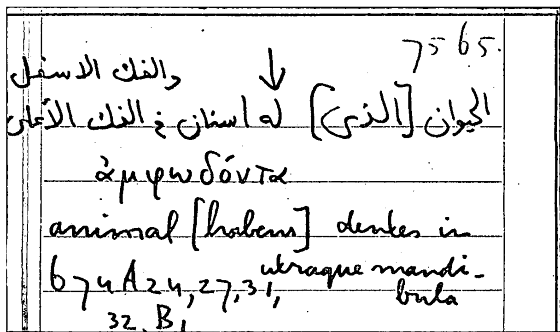 7565.
والفك الاسفل
الحيوان [الذى] له اسنان فى الفك الأعلى
ἀμφωδόντα
animal [habens] dentes in
utraque mandi-
bula
674A24,27,31,
32, B1